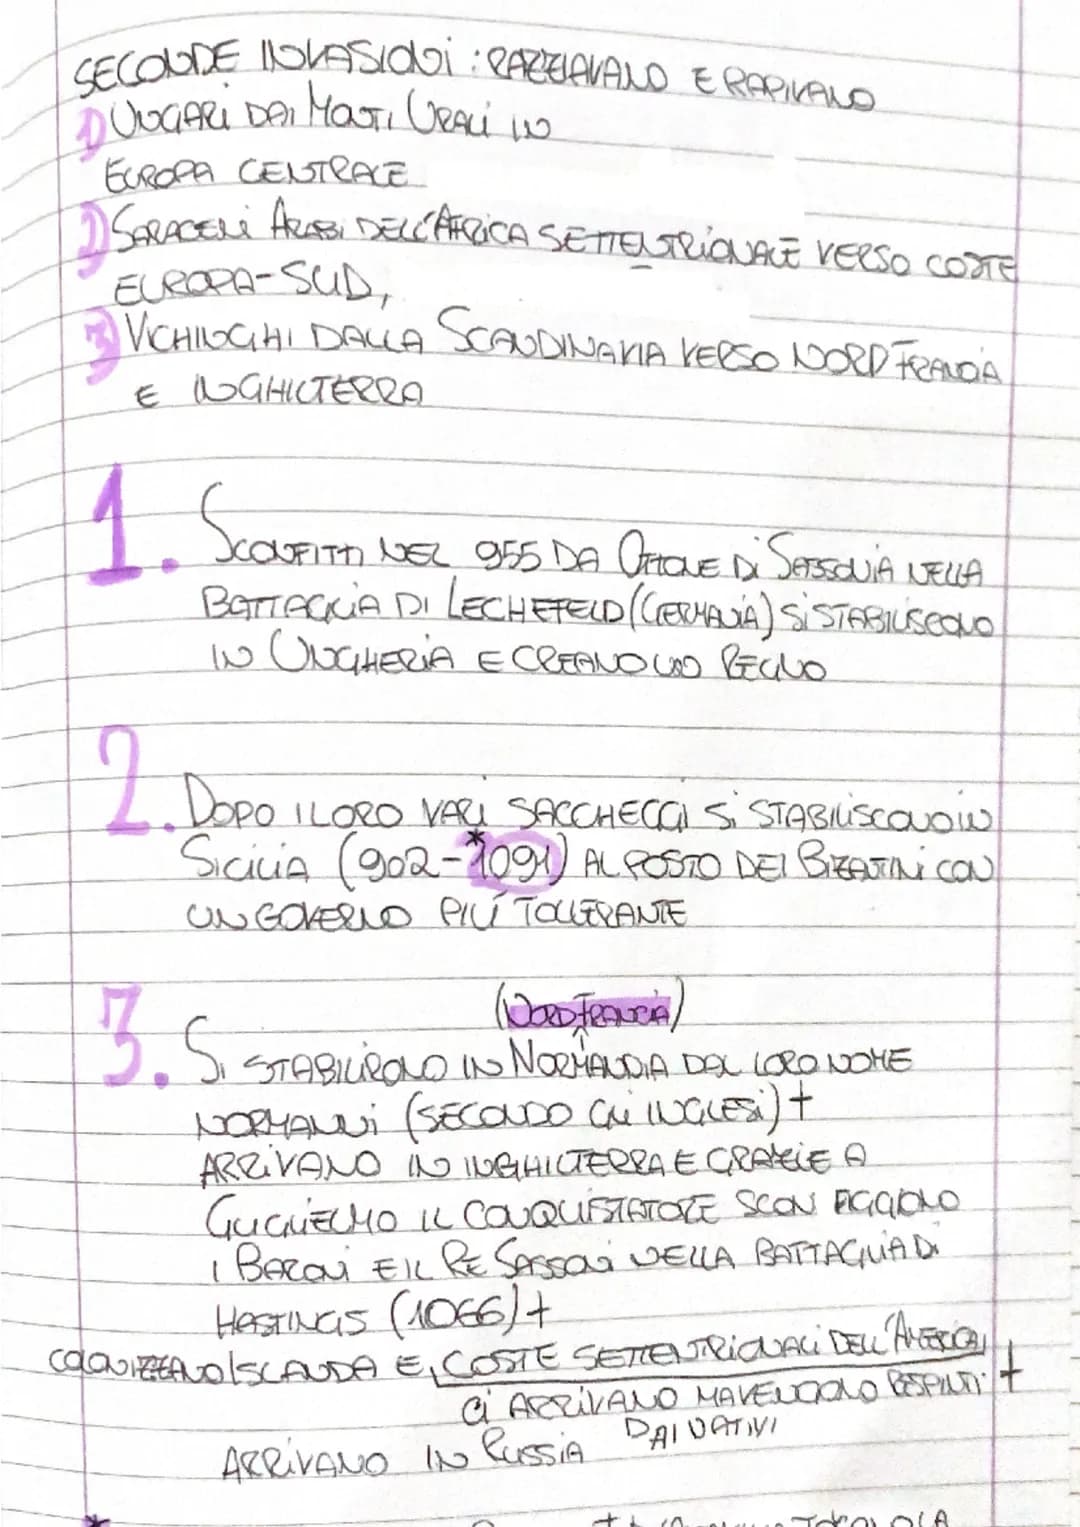 SECONDE INVASIONI: RAZZIAVANO E RAPIVANO
1) UNGARI DAI MONTI URALI IN
EUROPA CENTRALE
2) SARACENI ARABI DELL'AFRICA SETTENTRIONALE VERSO COSTE
EUROPA-SUD,
3) VICHINGHI DALLA SCANDINAVIA VERSO NORD FRANCIA
E INGHILTERRA
1. SCONFITTI NEL 955 DA OTTONE DI SASSONIA NELLA
BATTAGLIA DI LECHEFELD (GERMANIA) SI STABILISCONO
IN UNGHERIA E CREANO UNO REGNO
2. DOPO I LORO VARI SACCHEGGI SI STABILISCONO IN
SICILIA (902-*1091) AL POSTO DEI BIZANTINI CON
UN GOVERNO PIÚ TOLLERANTE
(NORD FRANCIA)
3. SI STABILIRONO IN NORMANDIA DAL LORO NOME
NORMANNI (SECONDO GLI INGLESI) +
ARRIVANO IN INGHILTERRA E GRAZIE A
GUGLIELMO IL CONQUISTATORE SCONFIGGONO
I BARONI E IL RE SASSONI NELLA BATTAGLIA DI
HASTINGS (1066) +
COLONIZZANO ISLANDA E, COSTE SETTENTRIONALI DELL'AMERICA,
CI ARRIVANO MA VENGONO RESPINTI +
DAI NATIVI
ARRIVANO IN RUSSIA
*